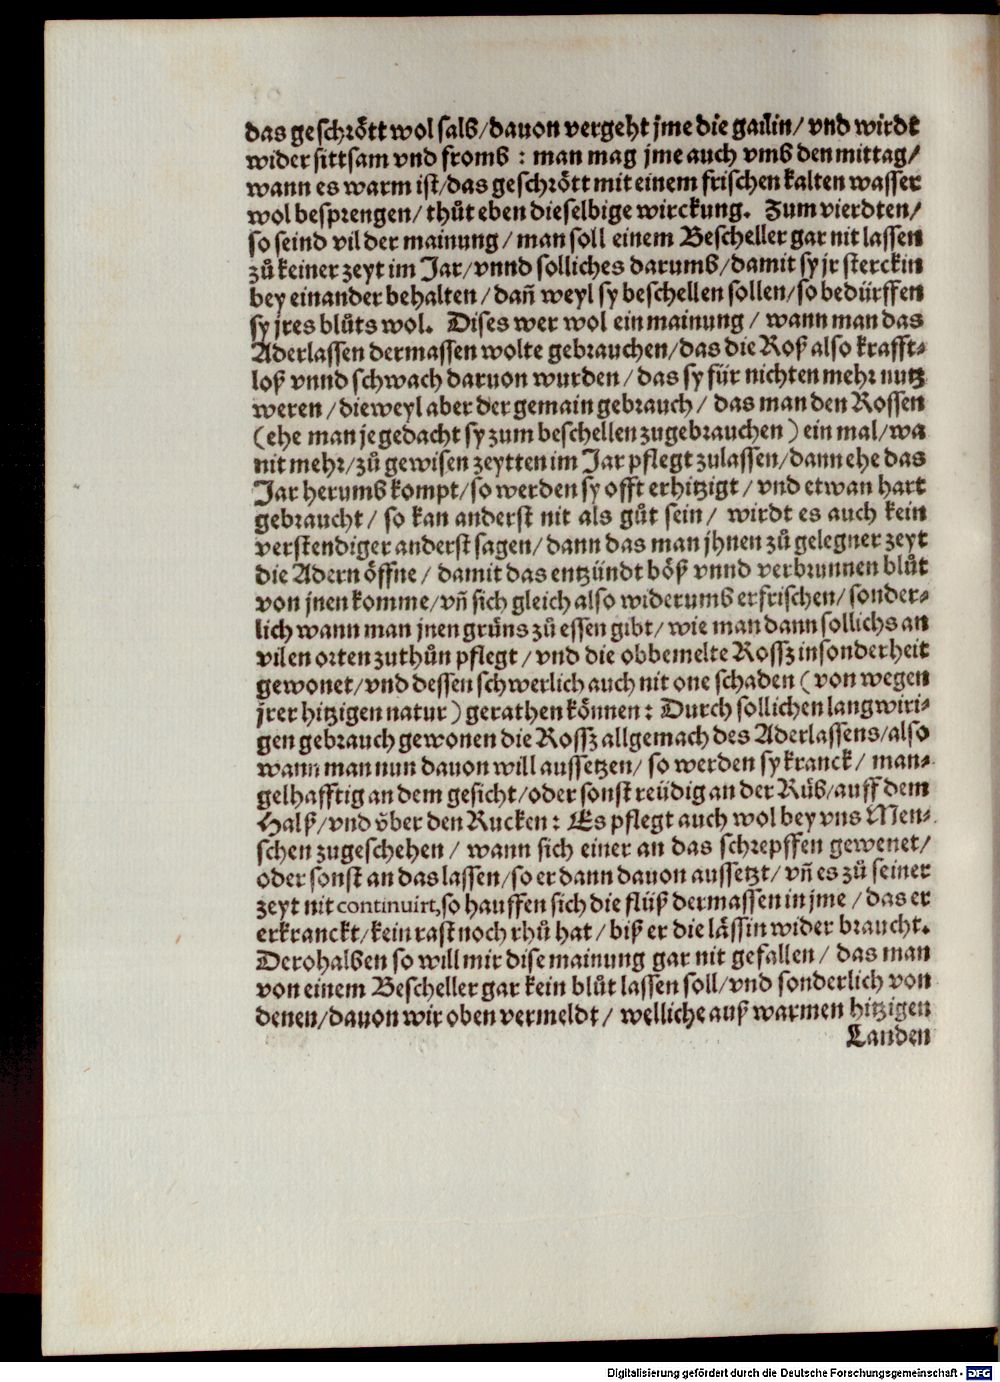 das geschrött wol salb/dauon vergeht jme die gailin/ vnd wirdt
wider sittsam vnd fromb : man mag jme auch vmb den mittag/
wann es warm ist/das geschrött mit einem frischen kalten wasser
wol besprengen/ thůt eben dieselbige wirckung. Zum vierdten/
so seind vil der mainung/ man soll einem Bescheller gar nit lassen
zů keiner zeyt im Jar/vnnd solliches darumb/damit sy jr sterckin
bey einander behalten/dañ weyl sy beschellen sollen/so bedürffen
sy jres blůts wol. Dises wer wol ein mainung/ wann man das
Aderlassen dermassen wolte gebrauchen/das die Roß also krafft-
loß vnnd schwach daruon wurden/das sy für nichten mehr nutz
weren/dieweyl aber der gemain gebrauch/ das man den Rossen
(ehe man je gedacht sy zum beschellen zugebrauchen) ein mal/wa
nit mehr/zů gewisen zeytten im Jar pflegt zulassen/dann ehe das
Jar herumb kompt/so werden sy offt erhitzigt/ vnd etwan hart
gebraucht/ so kan anderst nit als gůt sein/ wirdt es auch kein
verstendiger anderst sagen/dann das man jhnen zů gelegner zeyt
die Adern öffne/ damit das entzündt böß vnnd verbrunnen blůt
von jnen komme/vñ sich gleich also widerumb erfrischen/sonder-
lich wann man jnen grüns zů essen gibt/wie man dann sollichs an
vilen orten zuthůn pflegt/vnd die obbemelte Rossz insonderheit
gewonet/vnd dessen schwerlich auch nit one schaden (von wegen
jrer hitzigen natur) gerathen können: Durch sollichen langwiri-
gen gebrauch gewonen die Rossz allgemach des Aderlassens/also
wann man nun dauon will aussetzen/ so werden sy kranck/ man-
gelhafftig an dem gesicht/oder sonst reüdig an der Rüb/auff dem
Halß/vnd vber den Rucken: Es pflegt auch wol bey vns Men-
schen zugeschehen/ wann sich einer an das schrepffen gewenet/
oder sonst an das lassen/so er dann dauon aussetzt/vñ es zů seiner
zeyt nit continuirt,so hauffen sich die flüß dermassen in jme/das er
erkranckt/kein rast noch rhů hat/biß er die lässin wider braucht.
Derohalben so will mir dise mainung gar nit gefallen/ das man
von einem Bescheller gar kein blůt lassen soll/vnd sonderlich von
denen/dauon wir oben vermeldt/ welliche auß warmen hitzigen
Landen
Digitalisierung gefördert durch die Deutsche Forschungsgemeinschaft - DFG